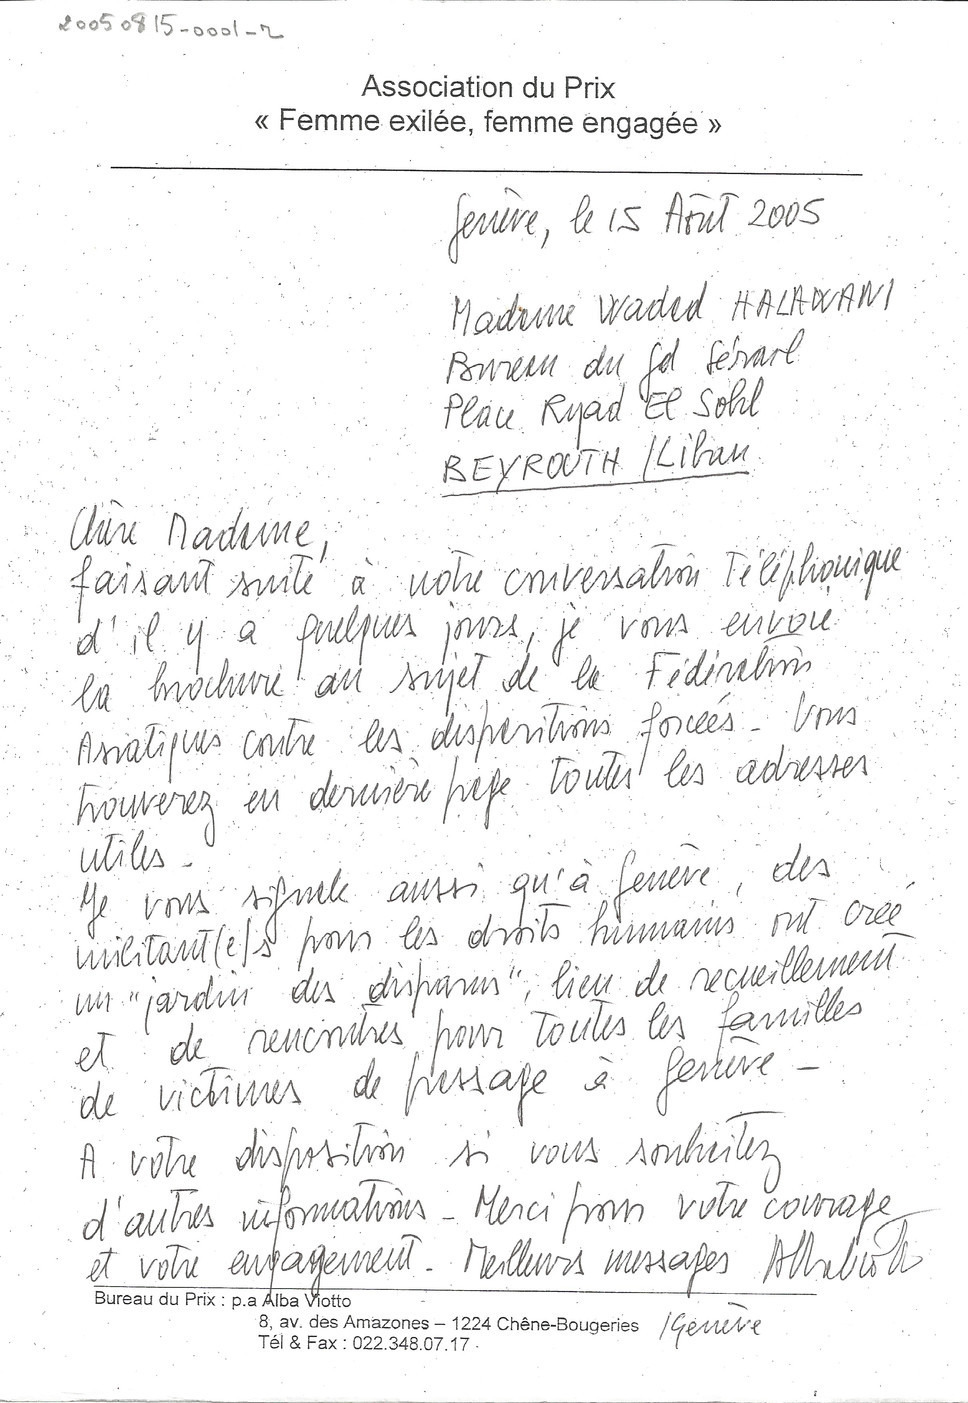 20050815-0001-2
Association du Prix
« Femme exilée, femme engagée »
Genève, le 15 Août 2005
Madame Waded HALAWANI
Bureau du Gd Sérail
Place Ryad El Sohl
BEYROUTH / Liban
Chère Madame,
faisant suite à notre conversation téléphonique
d'il y a quelques jours, je vous envoie
la brochure au sujet de la Fédération
Asiatiques contre les disparitions forcées - Vous
trouverez en dernière page toutes les adresses
utiles -
Je vous signale aussi qu'à Genève, des
militant(e)s pour les droits humains ont créé
un "jardin des disparus", lieu de recueillement
et de rencontres pour toutes les familles
de victimes de passage à Genève -
A votre disposition si vous souhaitez
d'autres informations - Merci pour votre courage
et votre engagement - Meilleurs messages Alba Viotto
Bureau du Prix : p.a Alba Viotto
8, av. des Amazones – 1224 Chêne-Bougeries /Genève
Tél & Fax : 022.348.07.17